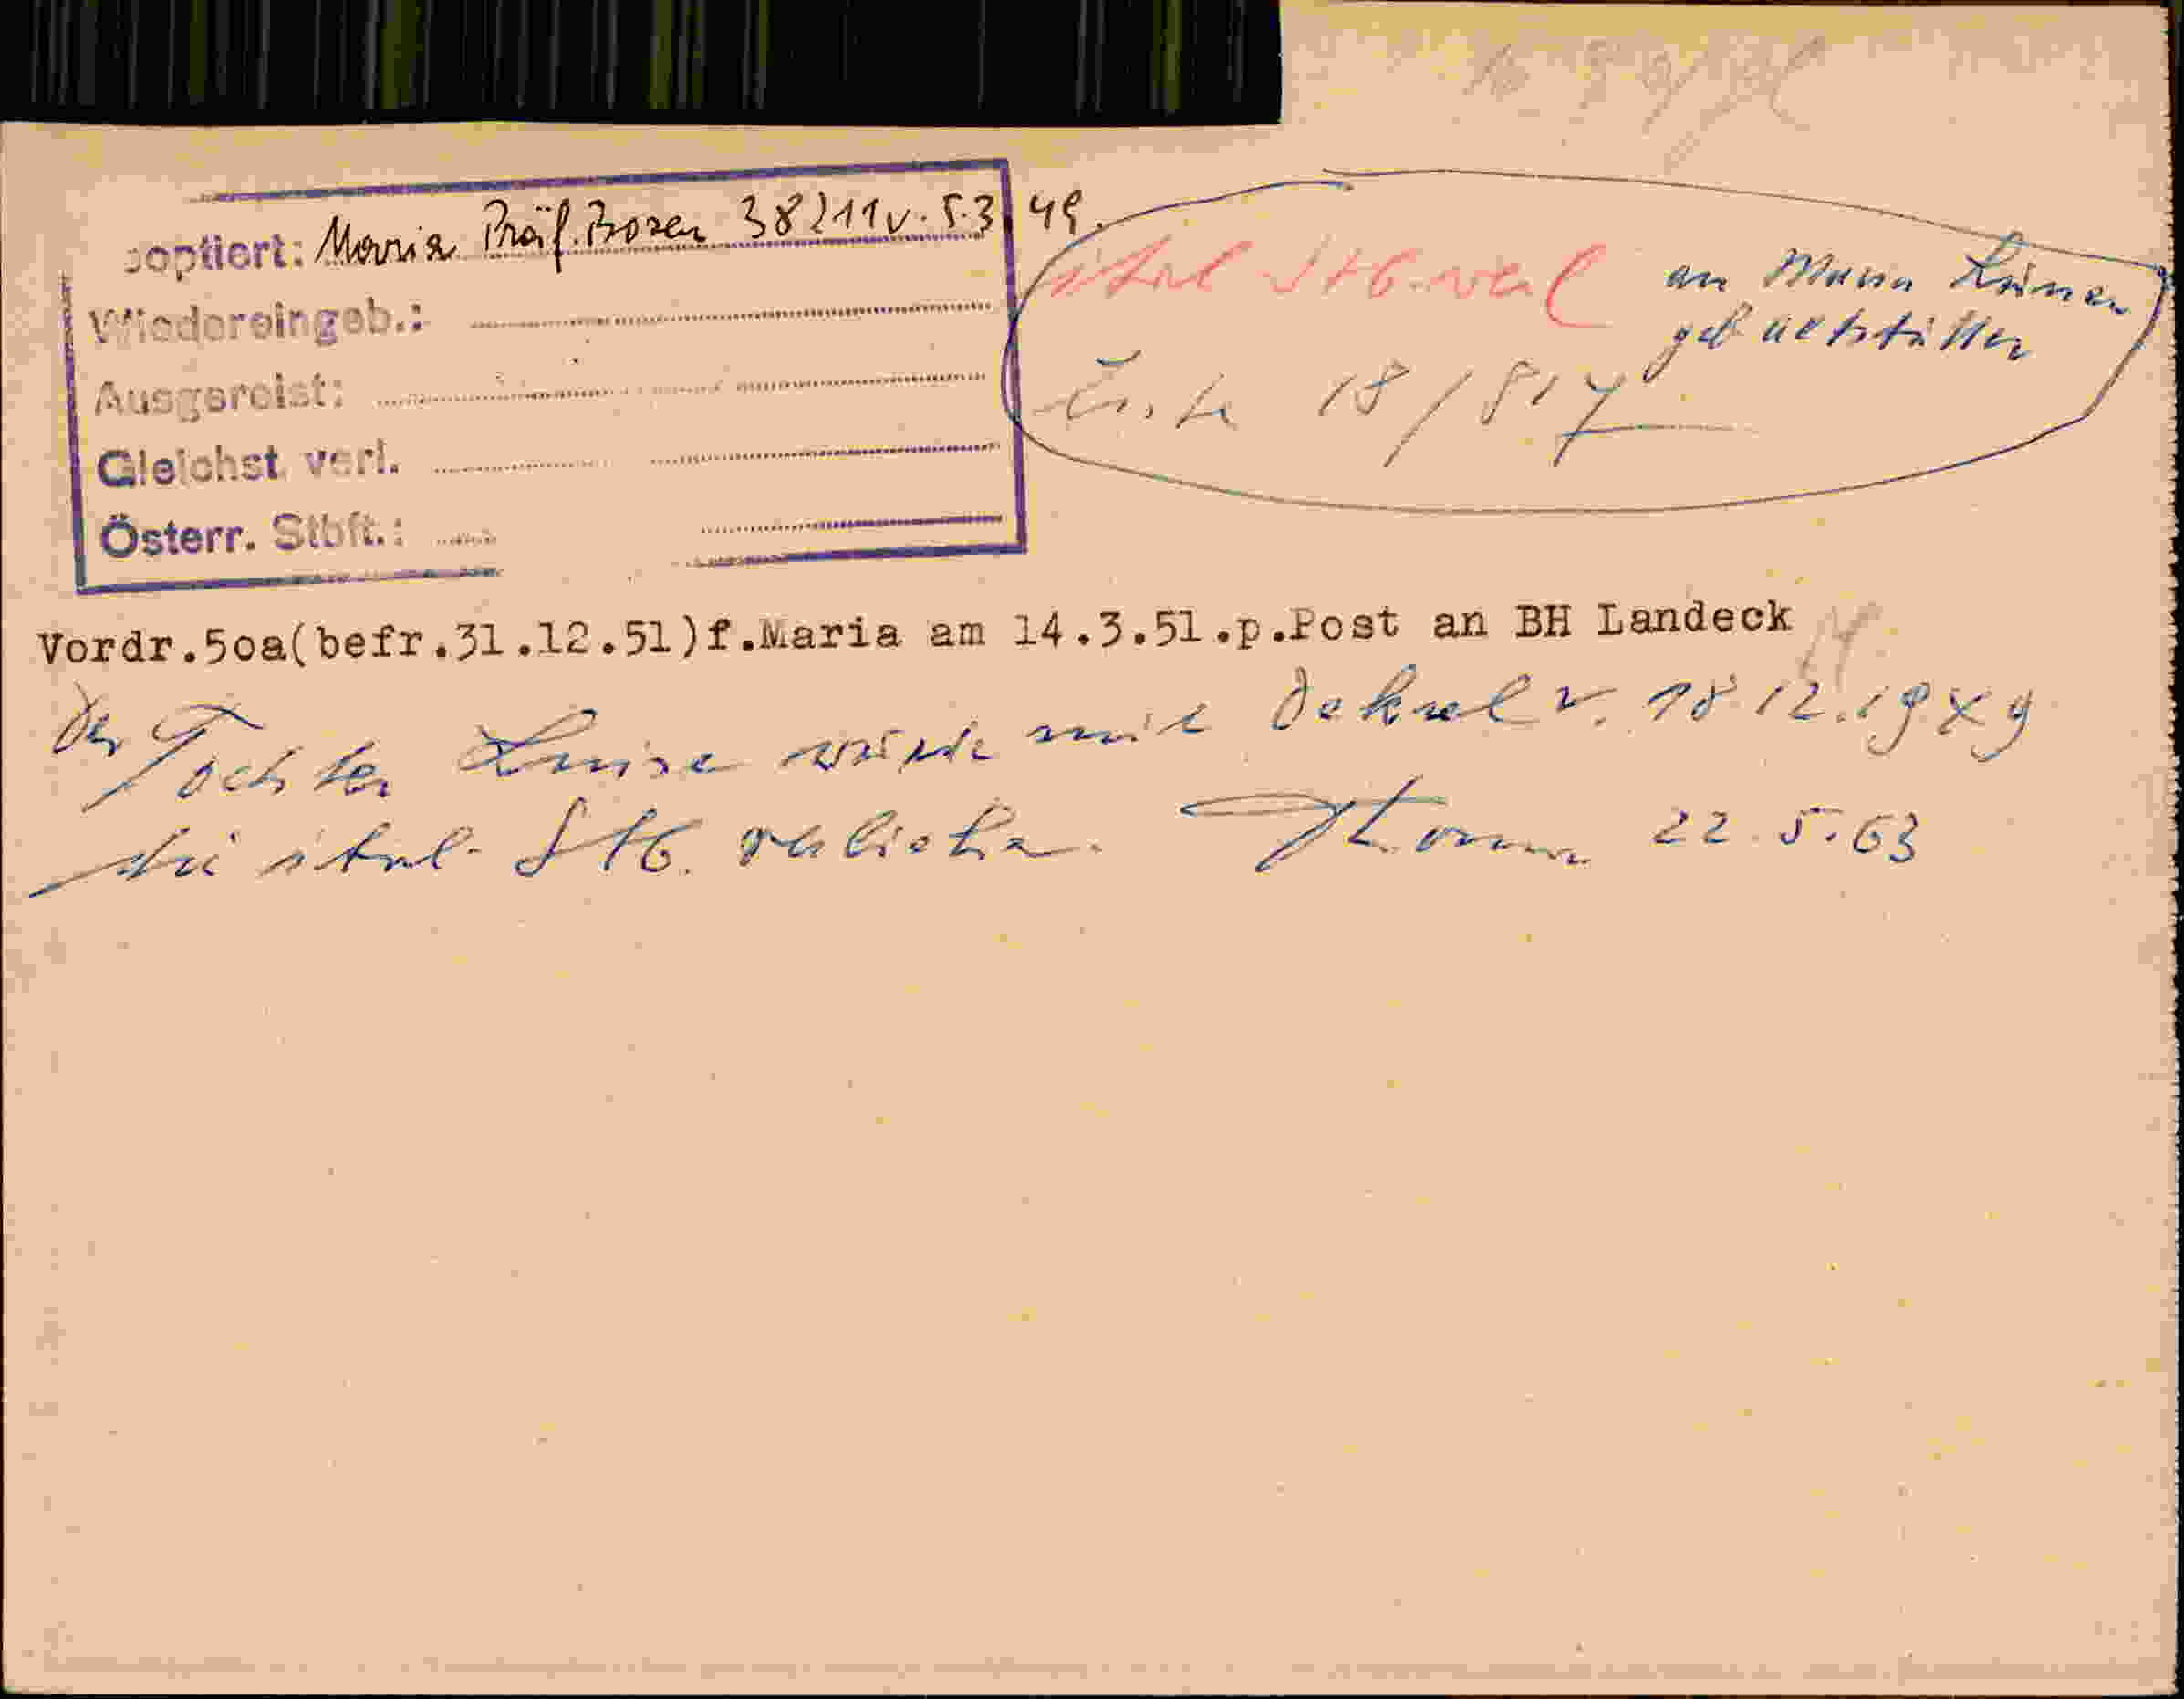 optiert: Maria Präf. Bozen 38211 v. 5.3.49.
Wiedereingeb.:
Ausgereist:
Gleichst verl.
Österr. Stbft.:
ital Stb. verl an Maria
geb
Liste 18/817
Vordr.5oa(befr.31.12.51)f.Maria am 14.3.51.p.Post an BH Landeck
Der Tochter Luise wurde mit Dekret v. 18 12.1949
die ital. Stb. verliehen. 22.5.63